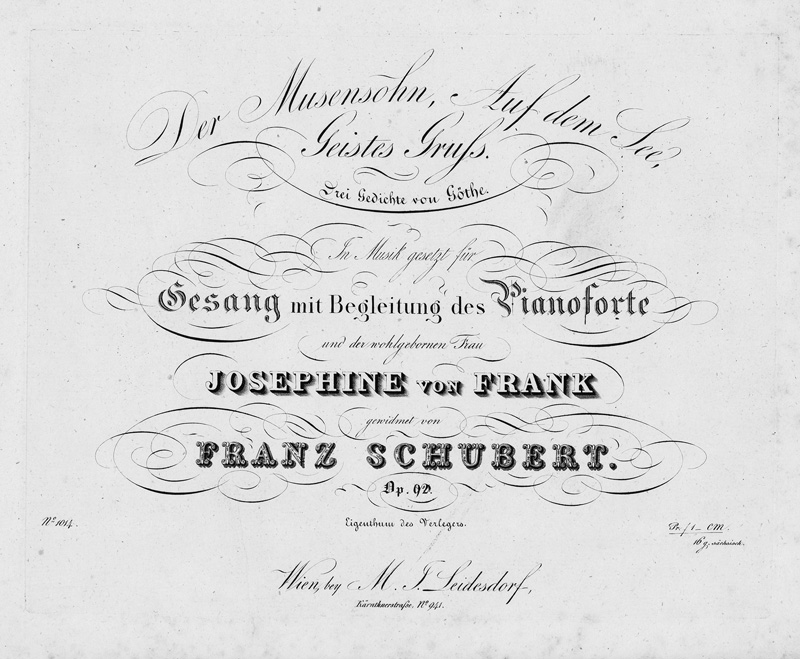 Der Musensohn, Auf dem See,
Geistes Gruſs.
Drei Gedichte von Göthe.
In Musik gesetzt für
Gesang mit Begleitung des Pianoforte
und der wohlgebornen Frau
JOSEPHINE VON FRANK
gewidmet von
FRANZ SCHUBERT.
Op. 92.
Nº 1014.
Eigenthum des Verlegers.
Pr. f 1_ CM.
16 g. sächsisch.
Wien, bey M. J. Leidesdorf,
Kärnthnerstraſse. Nº 941.